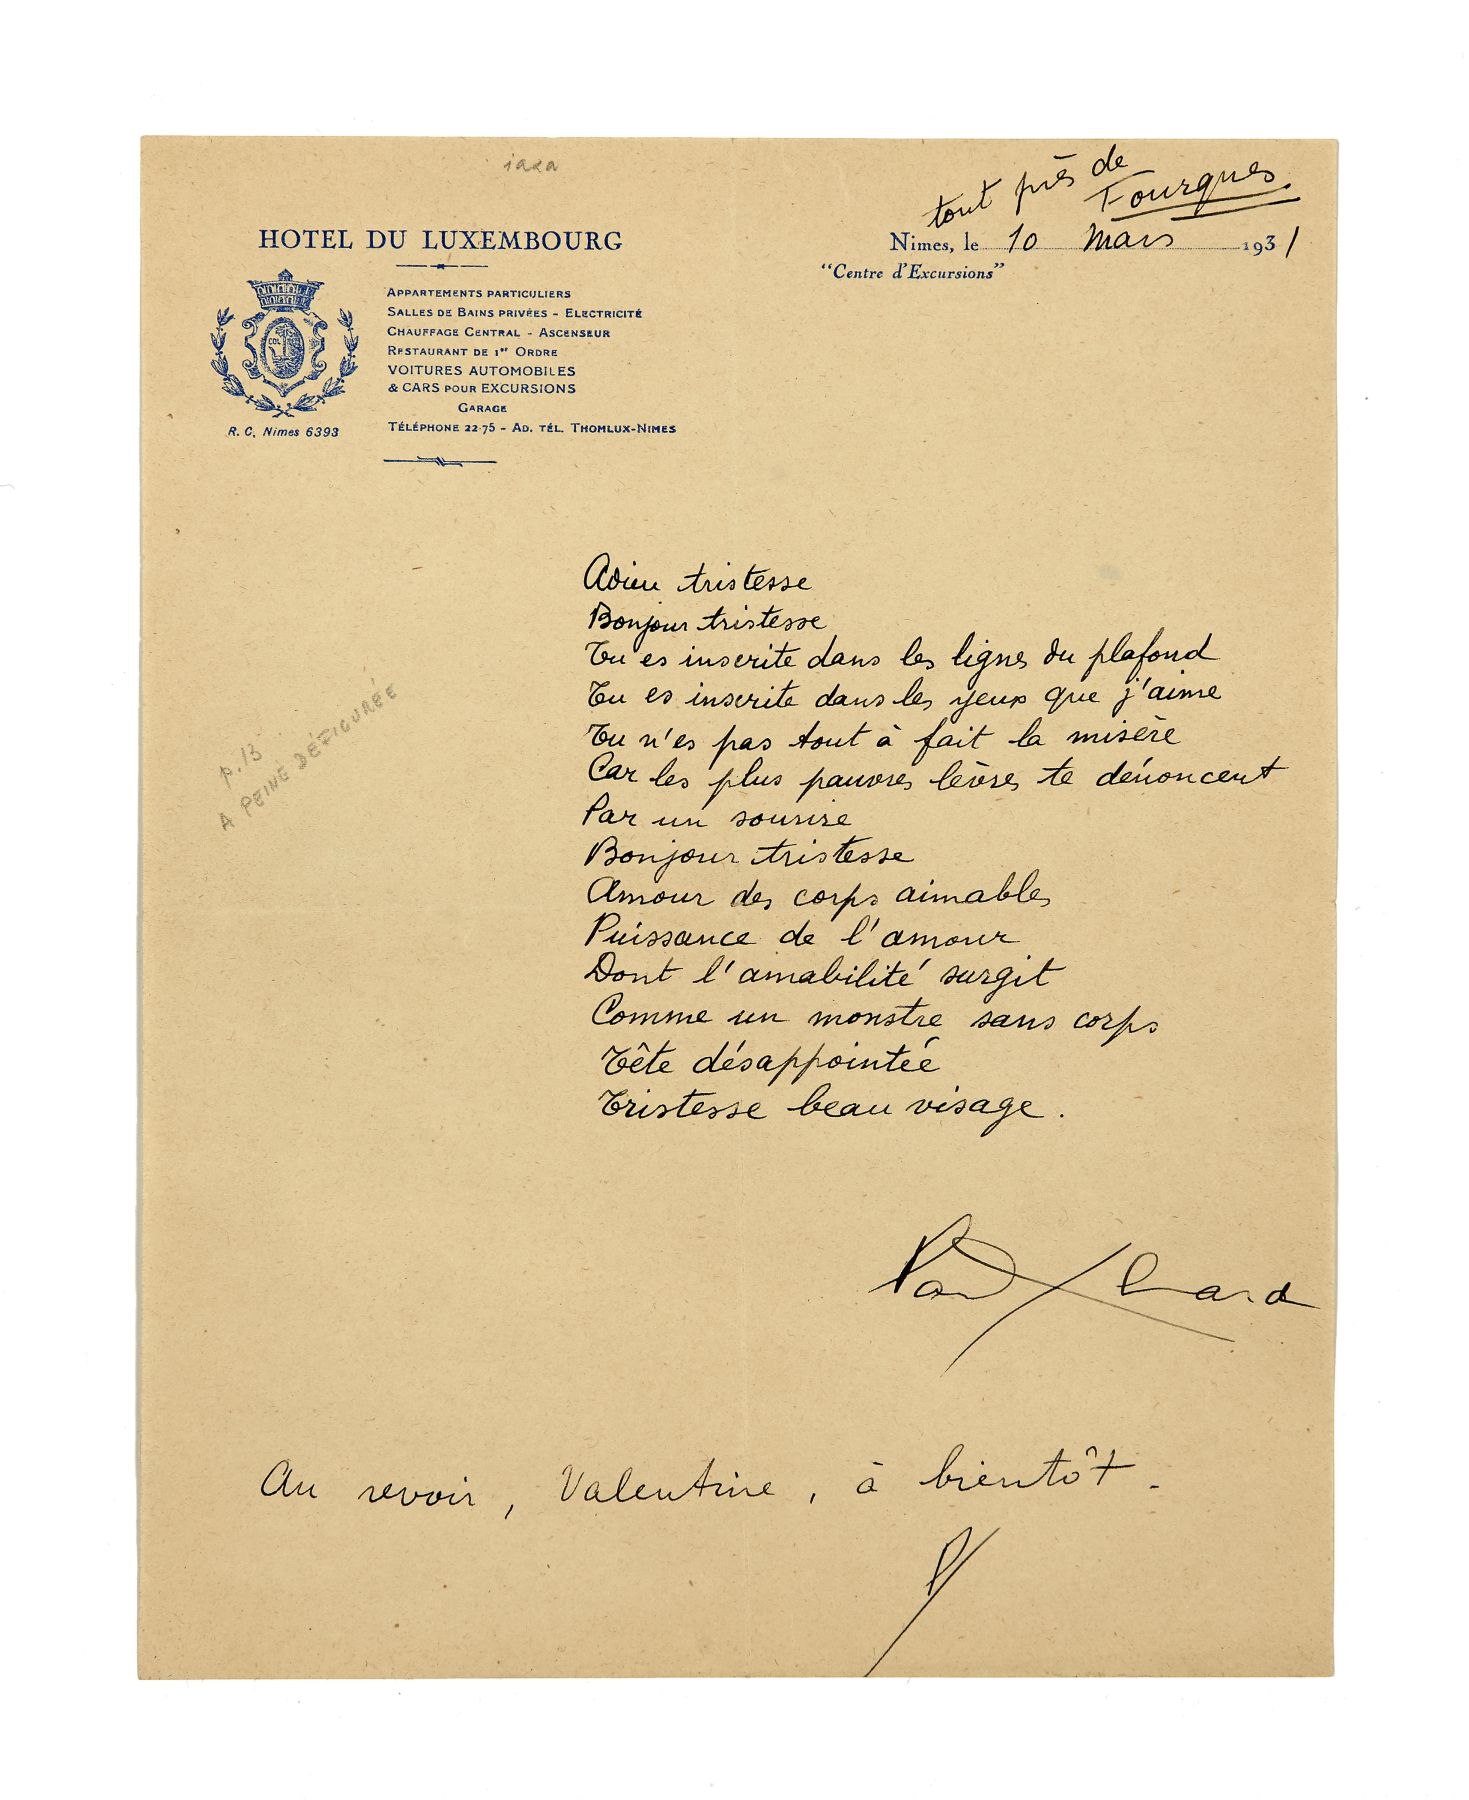 tout près de
Fourques
HOTEL DU LUXEMBOURG
Nimes, le 10 Mars 1931
"Centre d'Excursions"
APPARTEMENTS PARTICULIERS
SALLES DE BAINS PRIVÉES - ELECTRICITÉ
CHAUFFAGE CENTRAL - ASCENSEUR
RESTAURANT DE 1er ORDRE
VOITURES AUTOMOBILES
& CARS POUR EXCURSIONS
GARAGE
TÉLÉPHONE 22-75 - AD. TÉL. THOMLUX-NIMES
R. C. Nimes 6393
Adieu tristesse
Bonjour tristesse
Tu es inscrite dans les lignes du plafond
Tu es inscrite dans les yeux que j'aime
Tu n'es pas tout à fait la misère
Car les plus pauvres lèvres te dénoncent
Par un sourire
Bonjour tristesse
Amour des corps aimables
Puissance de l'amour
Dont l'amabilité surgit
Comme un monstre sans corps
Tête désappointée
Tristesse beau visage.
p. 13
A PEINE DÉFIGURÉE
Paul Eluard
Au revoir, Valentine, à bientôt.
P